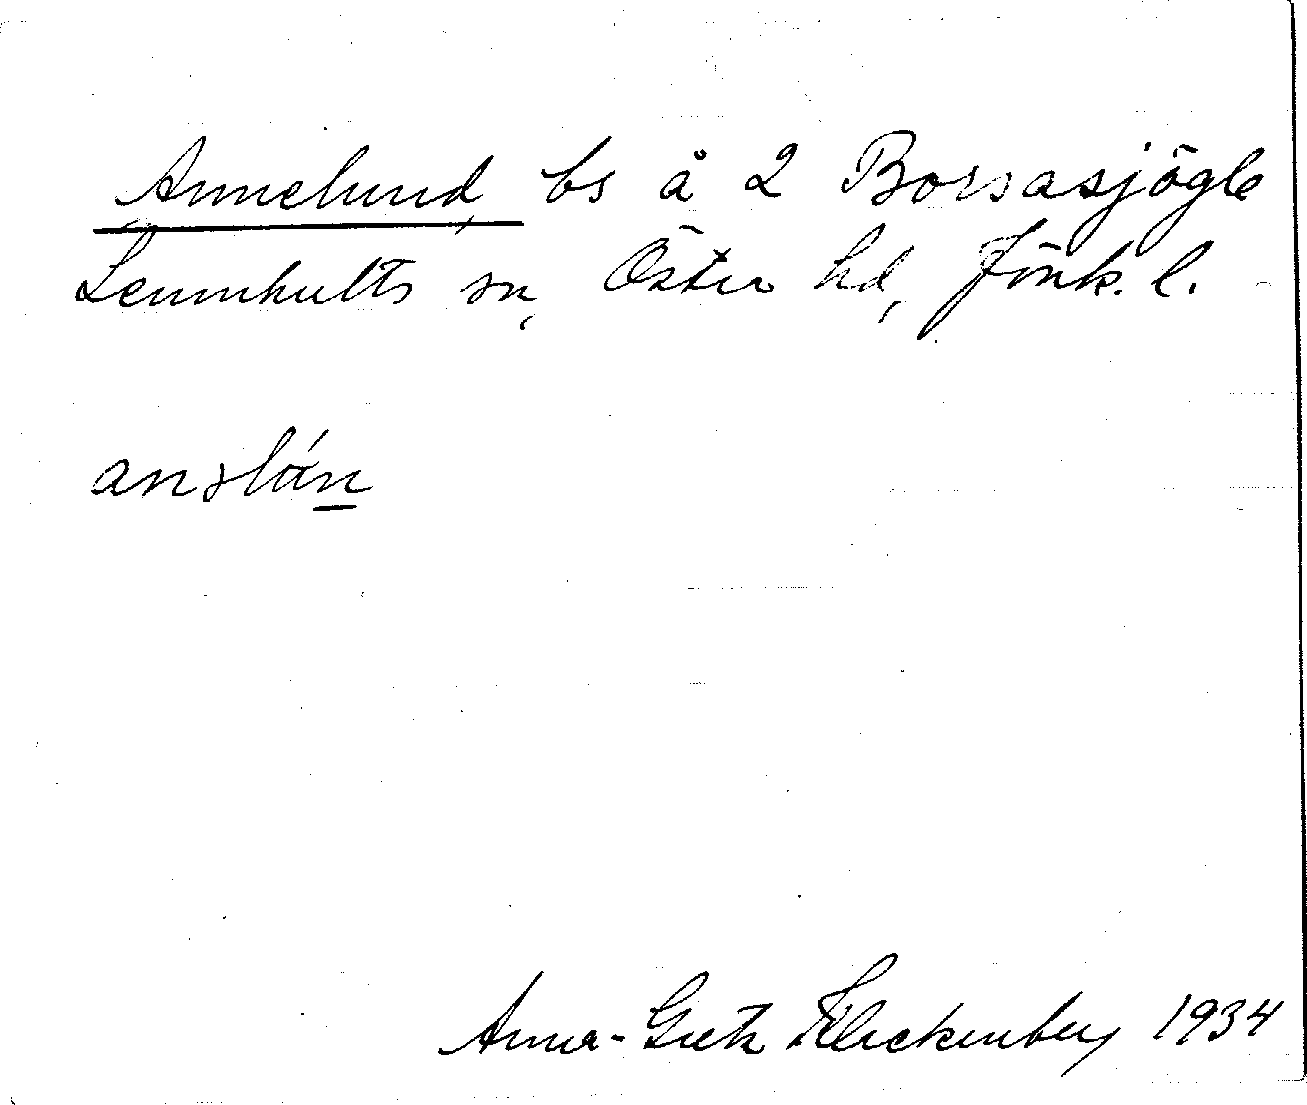 Annelund, bs å 2 Borsasjögle
Lemnhults sn, Öster hd, Jönk. l.
anslán
Anna-Greta Kleckenberg 1934